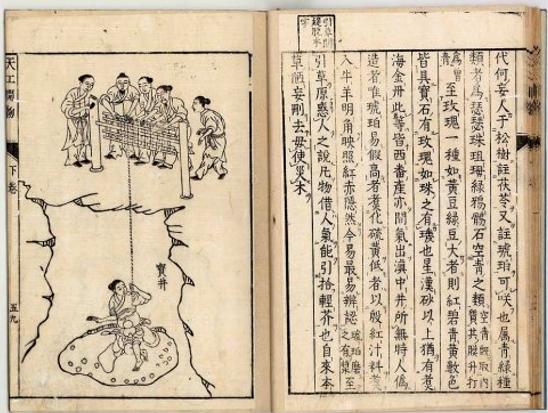 代何妄人于松樹註茯苓又註琥珀可咲也属青緑種
類者爲瑟瑟珠珇珻綠鴉鶻石空青之類空青既取内質其膜升打
爲曾青至玫瑰一種如黄豆緑豆大者則紅碧青黄數色
皆具寶石有玫瑰如珠之有璣也星漢砂以上猶有煑
海金丹此等皆西番產亦間氣出滇中井所無時人僞
造者唯琥珀易假高者煑化硫黄低者以殷紅汁料煑
入牛羊明角映照紅赤隱然今易最易辨認琥珀磨之有漿至
引草原惑人之說凡物借人氣能引拾輕芥也自來本
草陋妄刪去毋使災木
寶井
天工開物
下卷
五九